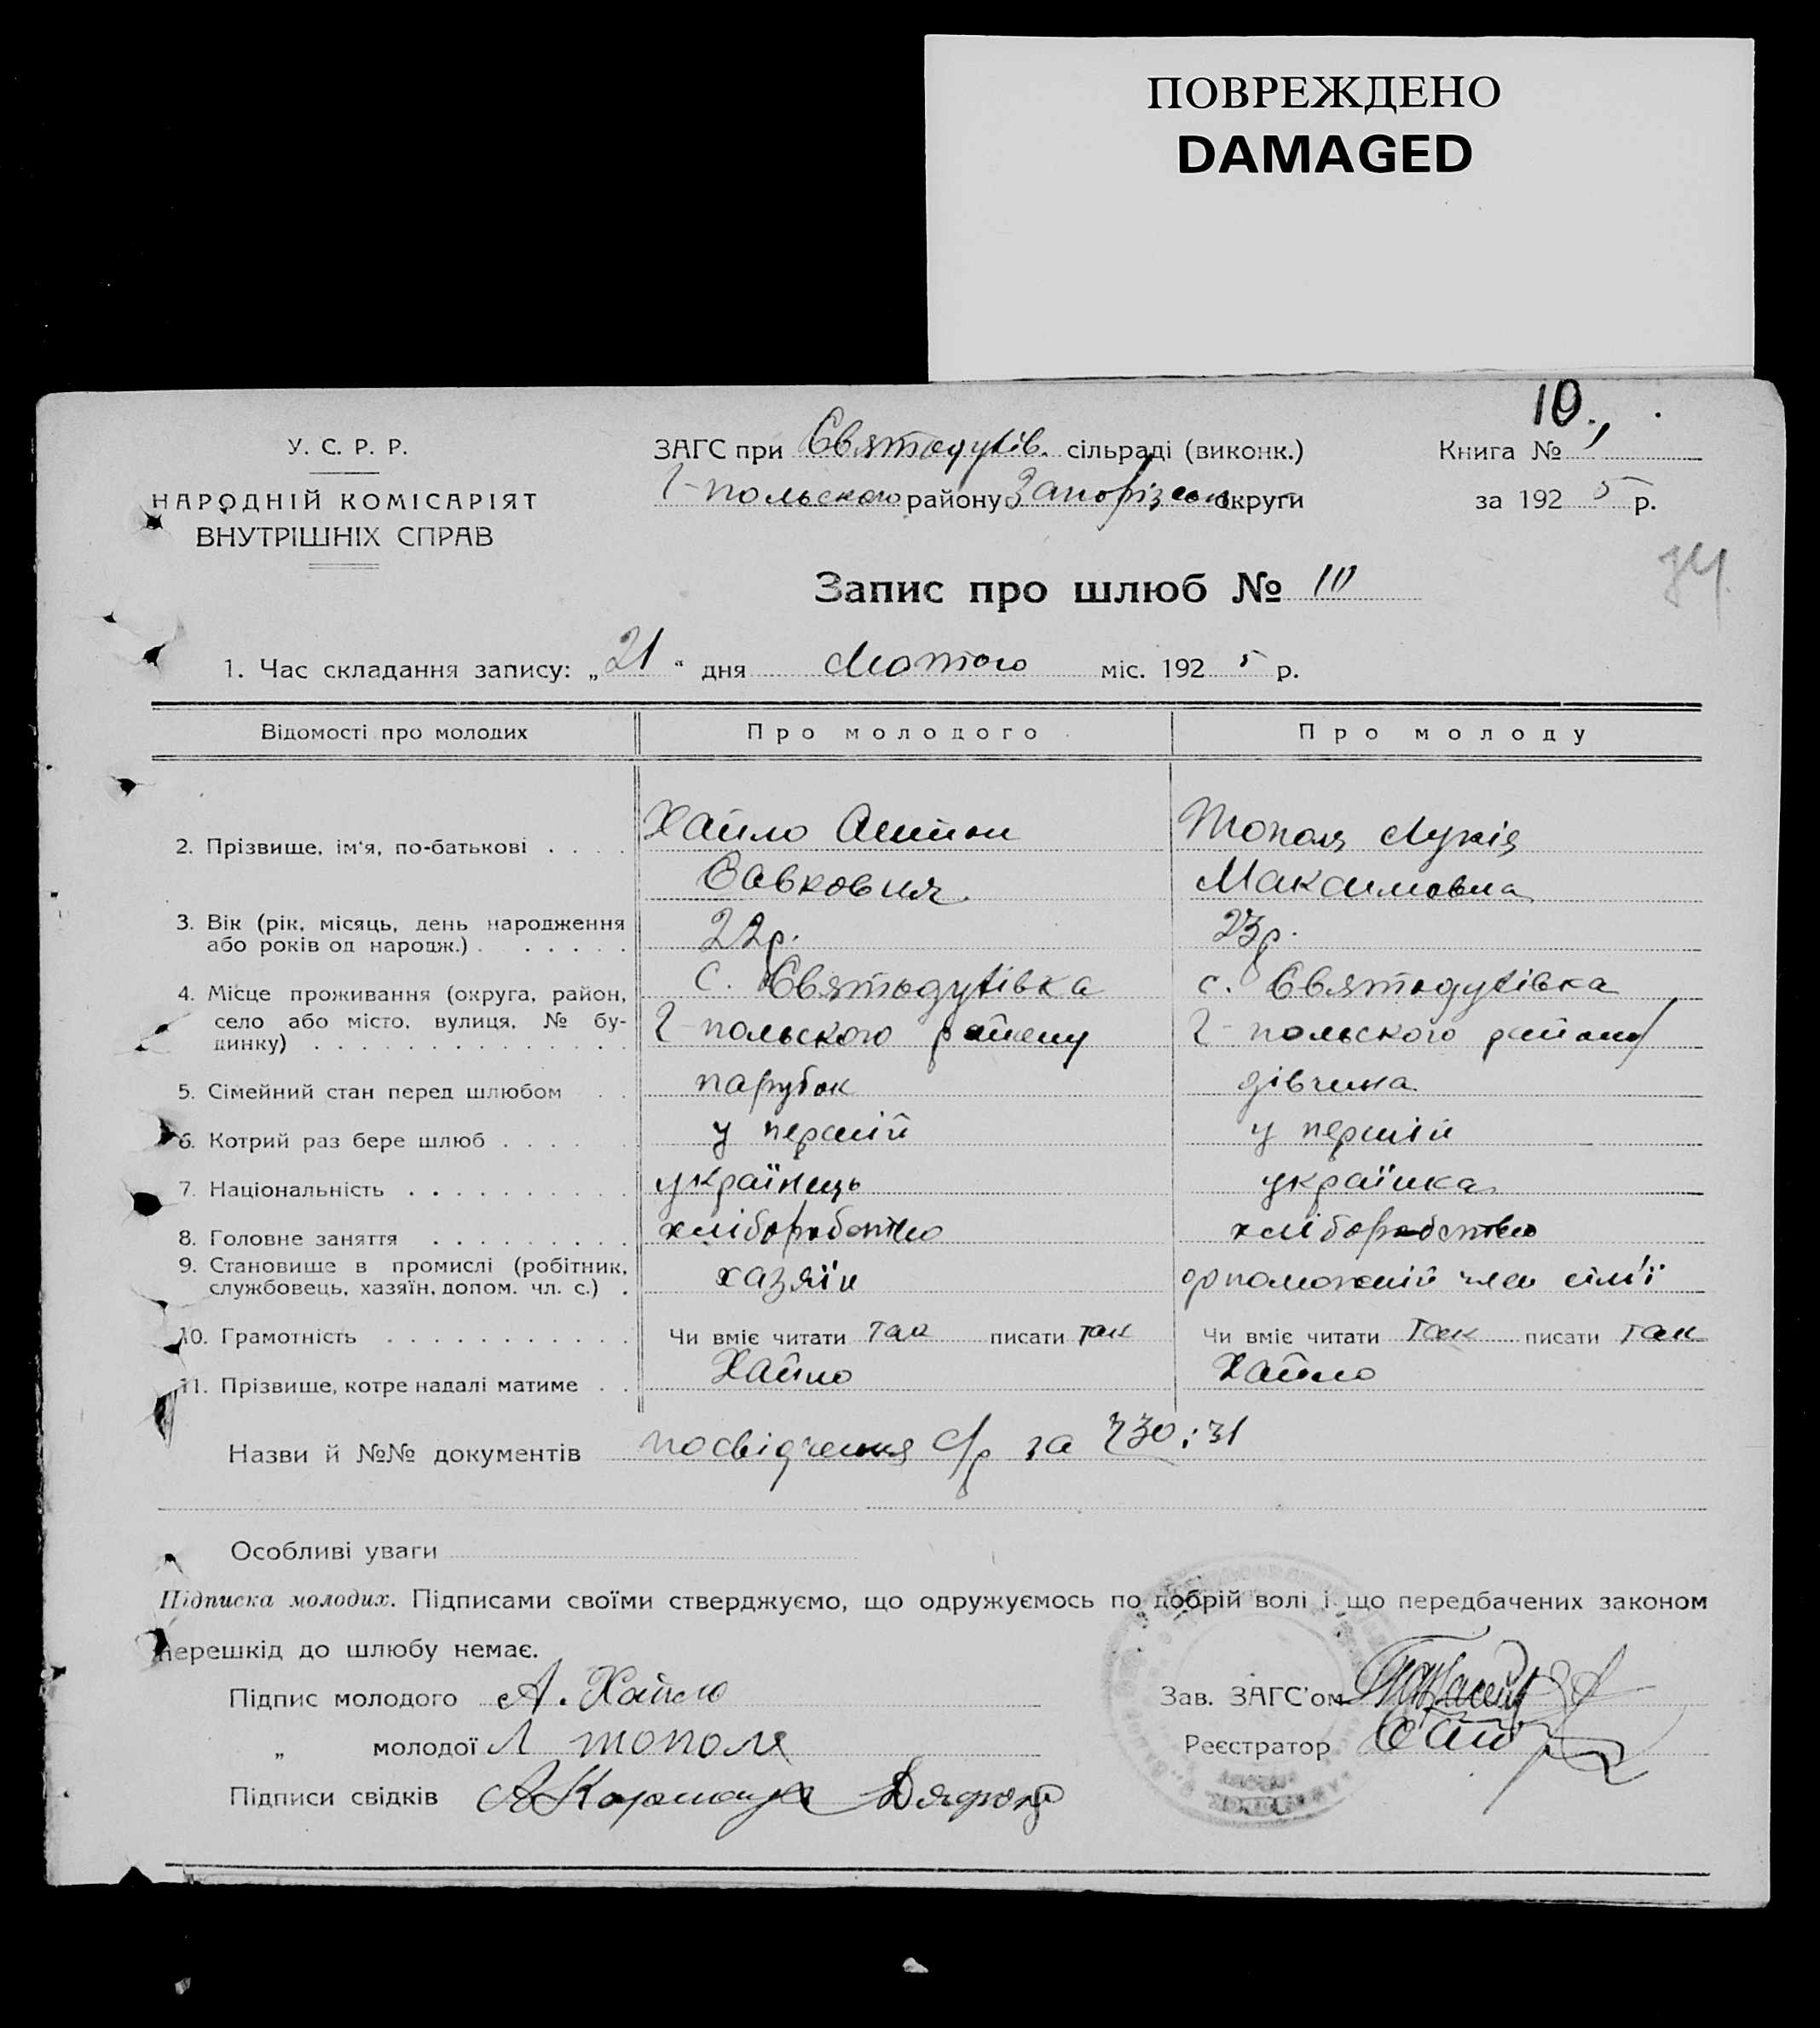 ПОВРЕЖДЕНО
DAMAGED
10
У. С. Р. Р.
НАРОДНІЙ КОМІСАРІЯТ
ВНУТРІШНІХ СПРАВ
ЗАГС при Святодухів. сільраді (виконк.)
Г-польского району Запорізьк округи
Книга №
за 1925 р.
74
Запис про шлюб № 10
1. Час складання запису: „21“ дня Лютого міс. 1925 р.
Відомості про молодих Про молодого Про молоду
2. Прізвище, ім'я, по-батькові . . . . Хайло Антон Тополя Лукія
Савкович Максимовна
3. Вік (рік, місяць, день народження
або років од народж.) . . . . . . 22р. 23р.
4. Місце проживання (округа, район, с. Святодухівка с. Святодухівка
село або місто, вулиця, № бу- Г-польского району Г-польского району
динку) . . . . . . . . . . . . . .
5. Сімейний стан перед шлюбом . . парубок дівчина
6. Котрий раз бере шлюб . . . . у первій у первій
7. Національність . . . . . . . . . . українець українка
8. Головне заняття . . . . . . . . . хліборобство хліборобство
9. Становище в промислі (робітник,
службовець, хазяїн, допом. чл. с.) . хазяїн допоможній член сім'ї
10. Грамотність . . . . . . . . . . . Чи вміє читати так писати так Чи вміє читати так писати так
11. Прізвище, котре надалі матиме . . Хайло Хайло
Назви й №№ документів посвідчення с/р за 230 і 31
Особливі уваги
Підписка молодих. Підписами своїми стверджуємо, що одружуємось по добрій волі і що передбачених законом
перешкід до шлюбу немає.
Підпис молодого А. Хайло
Зав. ЗАГС'ом
„ молодої Л тополя
Реєстратор
Підписи свідків